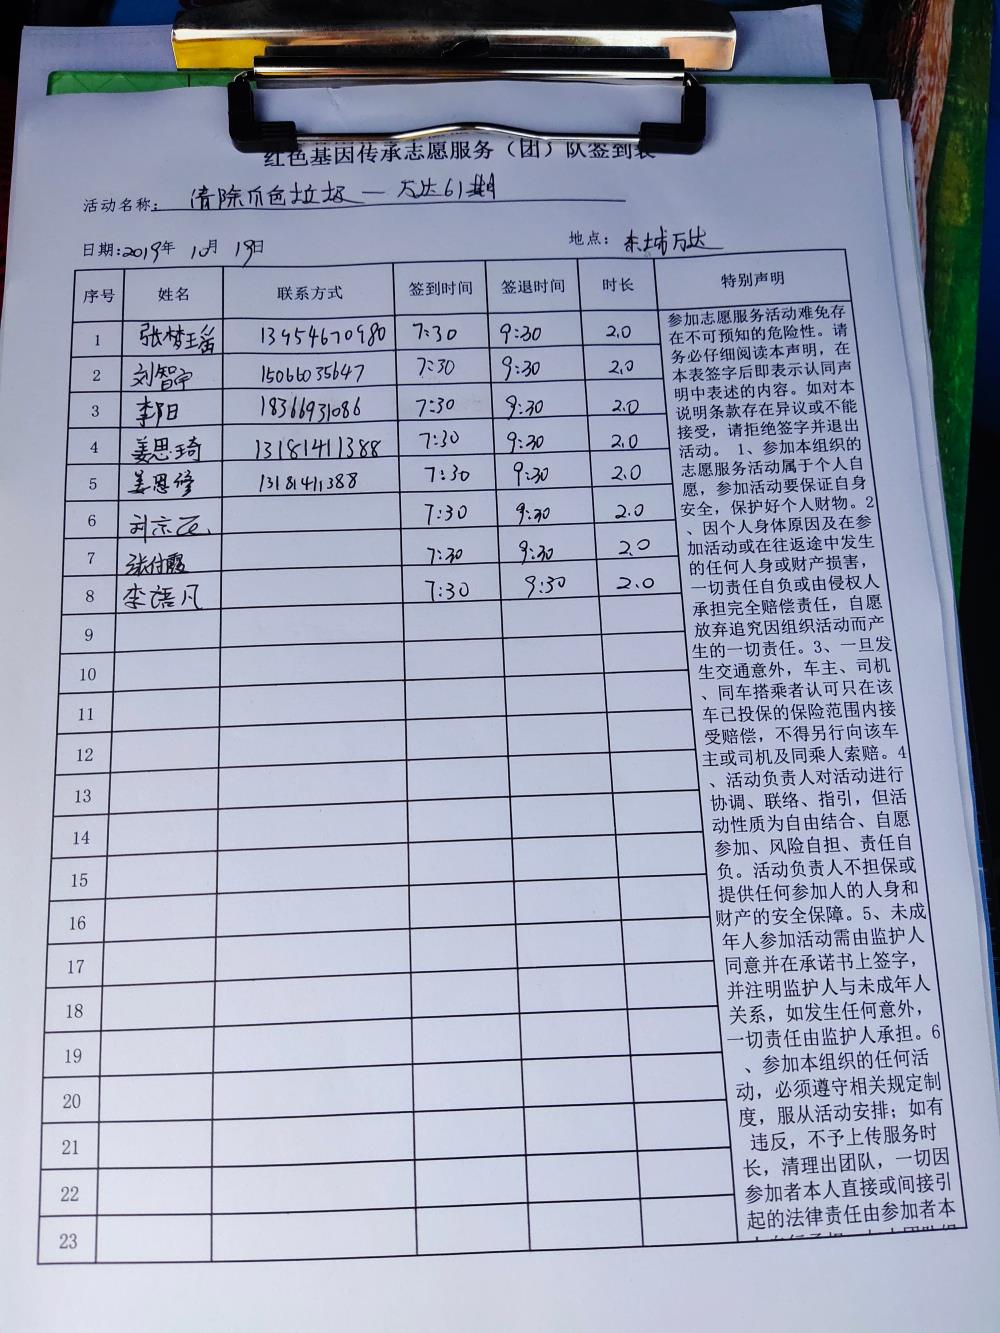 红色基因传承志愿服务（团）队签到表
活动名称：清除爪色垃圾 — 万达61期
日期:2019年 10月 19日 地点：东城万达
序号 姓名 联系方式 签到时间 签退时间 时长 特别声明
1 张梦瑶 13954670980 7:30 9:30 2.0
2 刘智宁 15066035647 7:30 9:30 2.0
3 李阳 18366931086 7:30 9:30 2.0
4 姜思琦 13181411388 7:30 9:30 2.0
5 姜思修 13181411388 7:30 9:30 2.0
6 7:30 9:30 2.0
7 张付霞 7:30 9:30 2.0
8 李语凡 7:30 9:30 2.0
9
10
11
12
13
14
15
16
17
18
19
20
21
22
23
参加志愿服务活动难免存
在不可预知的危险性。请
务必仔细阅读本声明，在
本表签字后即表示认同声
明中表述的内容。如对本
说明条款存在异议或不能
接受，请拒绝签字并退出
活动。 1、参加本组织的
志愿服务活动属于个人自
愿，参加活动要保证自身
安全，保护好个人财物。2
、因个人身体原因及在参
加活动或在往返途中发生
的任何人身或财产损害，
一切责任自负或由侵权人
承担完全赔偿责任，自愿
放弃追究因组织活动而产
生的一切责任。3、一旦发
生交通意外，车主、司机
、同车搭乘者认可只在该
车已投保的保险范围内接
受赔偿，不得另行向该车
主或司机及同乘人索赔。4
、活动负责人对活动进行
协调、联络、指引，但活
动性质为自由结合、自愿
参加、风险自担、责任自
负。活动负责人不担保或
提供任何参加人的人身和
财产的安全保障。5、未成
年人参加活动需由监护人
同意并在承诺书上签字，
并注明监护人与未成年人
关系，如发生任何意外，
一切责任由监护人承担。6
、参加本组织的任何活
动，必须遵守相关规定制
度，服从活动安排；如有
违反，不予上传服务时
长，清理出团队，一切因
参加者本人直接或间接引
起的法律责任由参加者本